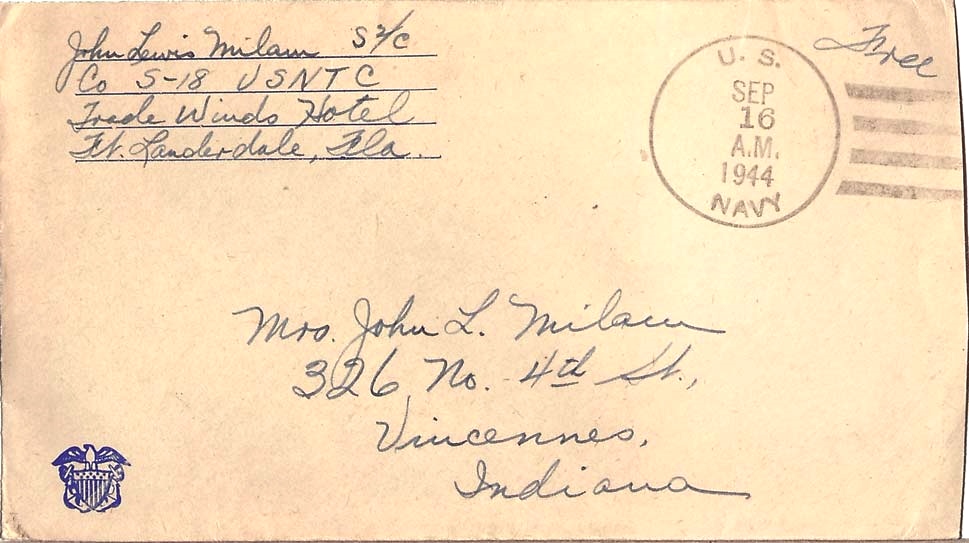 John Lewis Milam S2/C
Co S-18 USNTC
Trade Winds Hotel
Ft. Lauderdale, Fla.
Free
U. S.
SEP
16
A.M.
1944
NAVY
Mrs. John L. Milam
326 No. 4th St.,
Vincennes,
Indiana